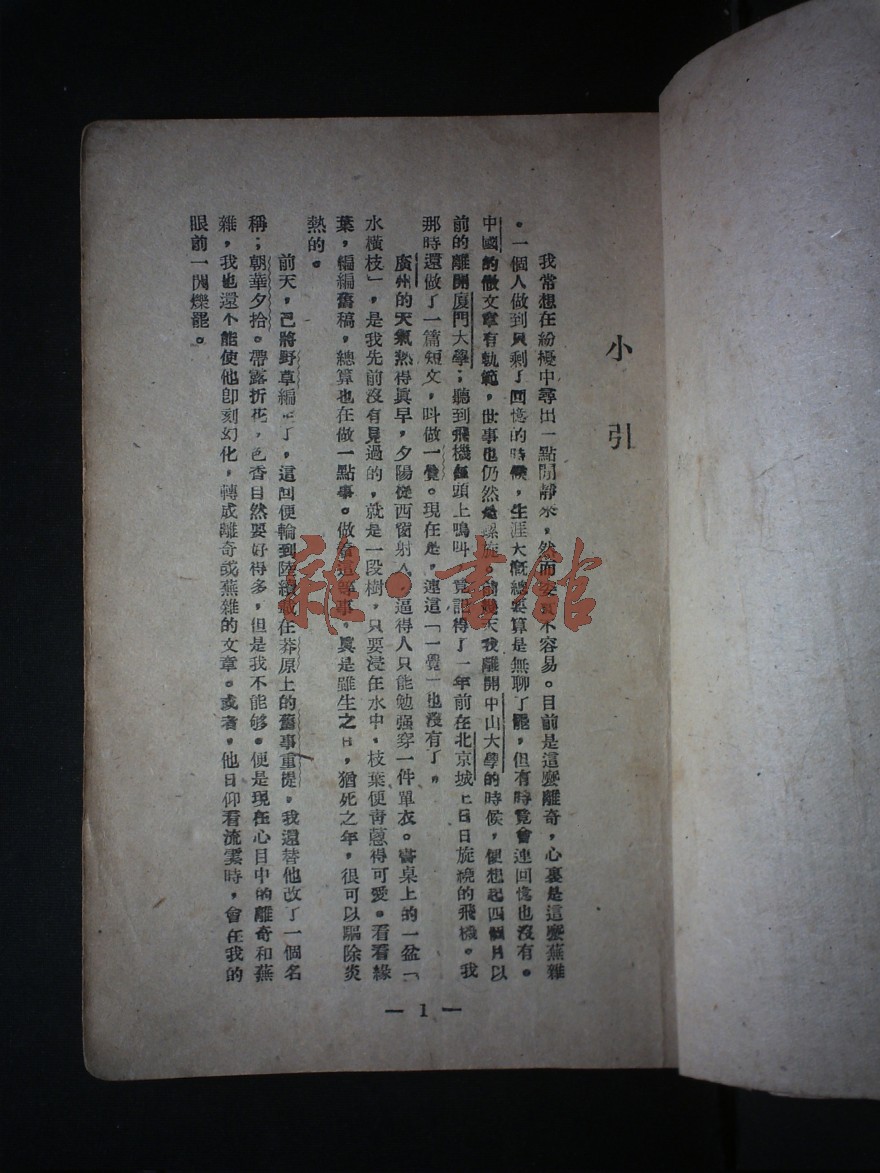 小引
我常想在紛擾中尋出一點閒靜來，然而委實不容易。目前是這麼離奇，心裏是這麼蕪雜
。一個人做到只剩了回憶的時候，生涯大概總要算是無聊了罷，但有時竟會連回憶也沒有。
中國的做文章有軌範，世事也仍然是螺旋。前幾天我離開中山大學的時候，便想起四個月以
前的離開廈門大學；聽到飛機在頭上鳴叫，竟記得了一年前在北京城上日日旋繞的飛機。我
那時還做了一篇短文，叫做一覺。現在是，連這「一覺」也沒有了，
廣州的天氣熱得眞早，夕陽從西窗射入，逼得人只能勉强穿一件單衣。書桌上的一盆「
水橫枝」，是我先前沒有見過的，就是一段樹，只要浸在水中，枝葉便靑蔥得可愛。看看綠
葉，編編舊稿，總算也在做一點事。做着這等事，眞是雖生之日，猶死之年，很可以驅除炎
熱的。
前天，已將野草編定了，這回便輪到陸續載在莽原上的舊事重提，我還替他改了一個名
稱；朝華夕拾。帶露折花，色香自然要好得多，但是我不能够。便是現在心目中的離奇和蕪
雜，我也還不能使他卽刻幻化，轉成離奇或蕪雜的文章。或者，他日仰看流雲時，會在我的
眼前一閃爍罷。
— 1 —
雜·書館